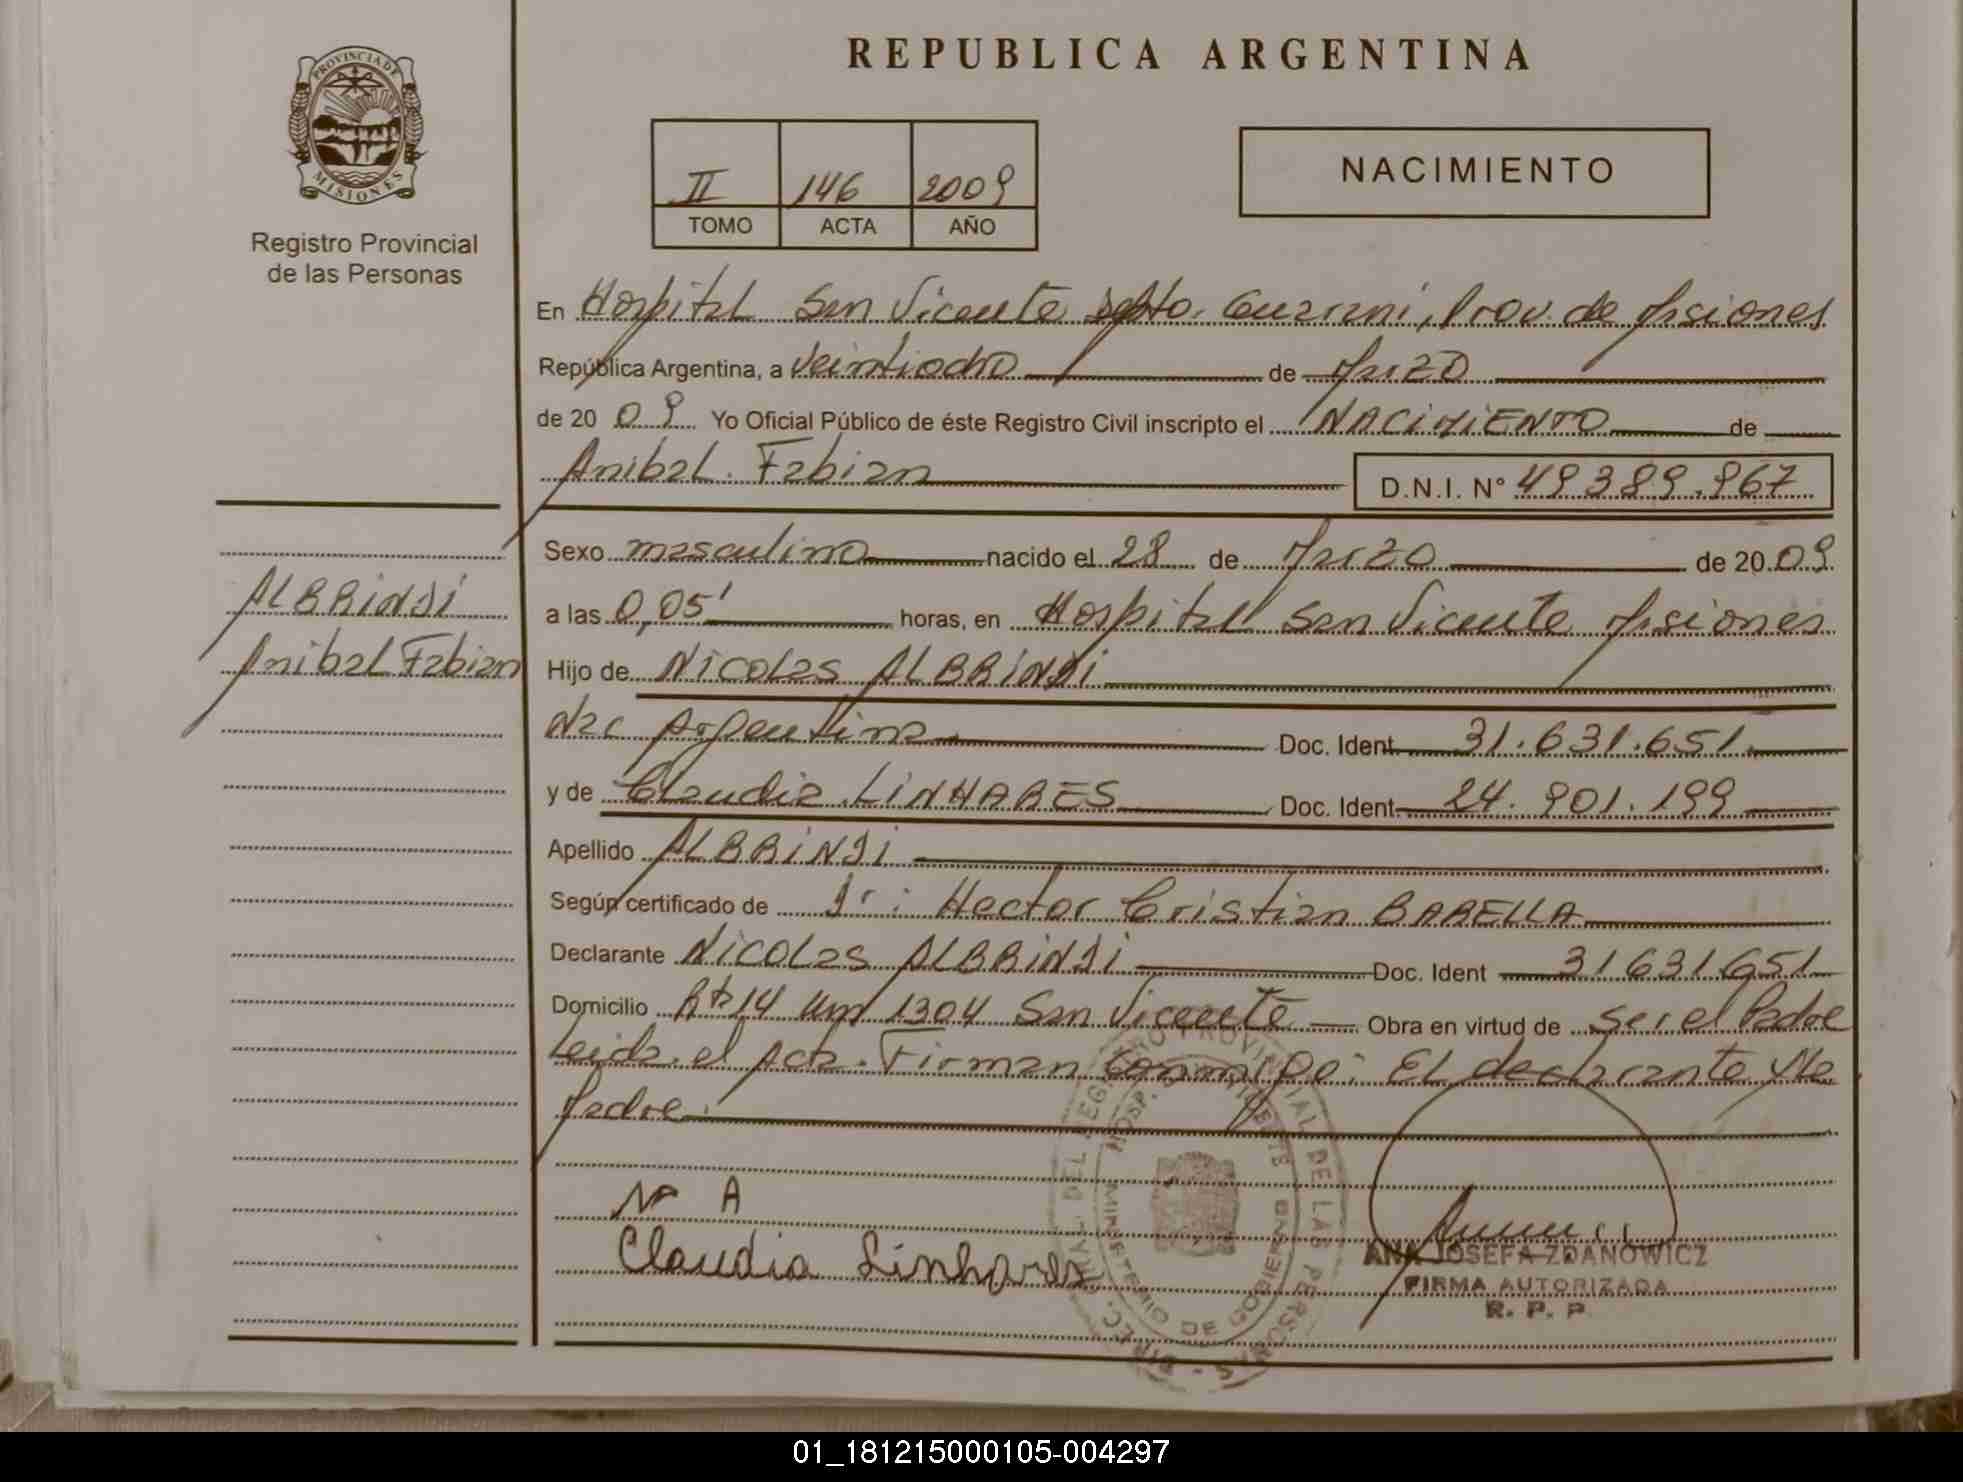 REPUBLICA ARGENTINA
PROVINCIA DE
MISIONES
Registro Provincial
de las Personas
II 146 2009
TOMO ACTA AÑO
NACIMIENTO
En Hospital San Vicente Dpto. Guarani, Prov. de Misiones
República Argentina, a veintiocho de Marzo
de 20 09 Yo Oficial Público de éste Registro Civil inscripto el NACIMIENTO de
Anibal Fabian D.N.I. N° 49.389.967
Sexo masculino nacido el 28 de Marzo de 20 09
a las 0,05' horas, en Hospital San Vicente Misiones
Hijo de Nicolas ALBRINDI
Nac Argentina Doc. Ident 31.631.651
y de Claudia LINHARES Doc. Ident 24.901.199
Apellido ALBRINDI
Según certificado de Dr: Hector Cristian BARELLA
Declarante Nicolas ALBRINDI Doc. Ident 31631651
Domicilio Rta 14 km 1304 San Vicente Obra en virtud de ser el Padre
Leida el Acta. Firman conmigo: El declarante y la
Madre.
ALBRINDI
Anibal Fabian
N A
Claudia Linhares
DIREC. GRAL. DEL REGISTRO PROVINCIAL DE LAS PERSONAS
HOSP. SAN VICENTE
MINISTERIO DE GOBIERNO
ANA JOSEFA ZDANOWICZ
FIRMA AUTORIZADA
R. P. P.
01_181215000105-004297